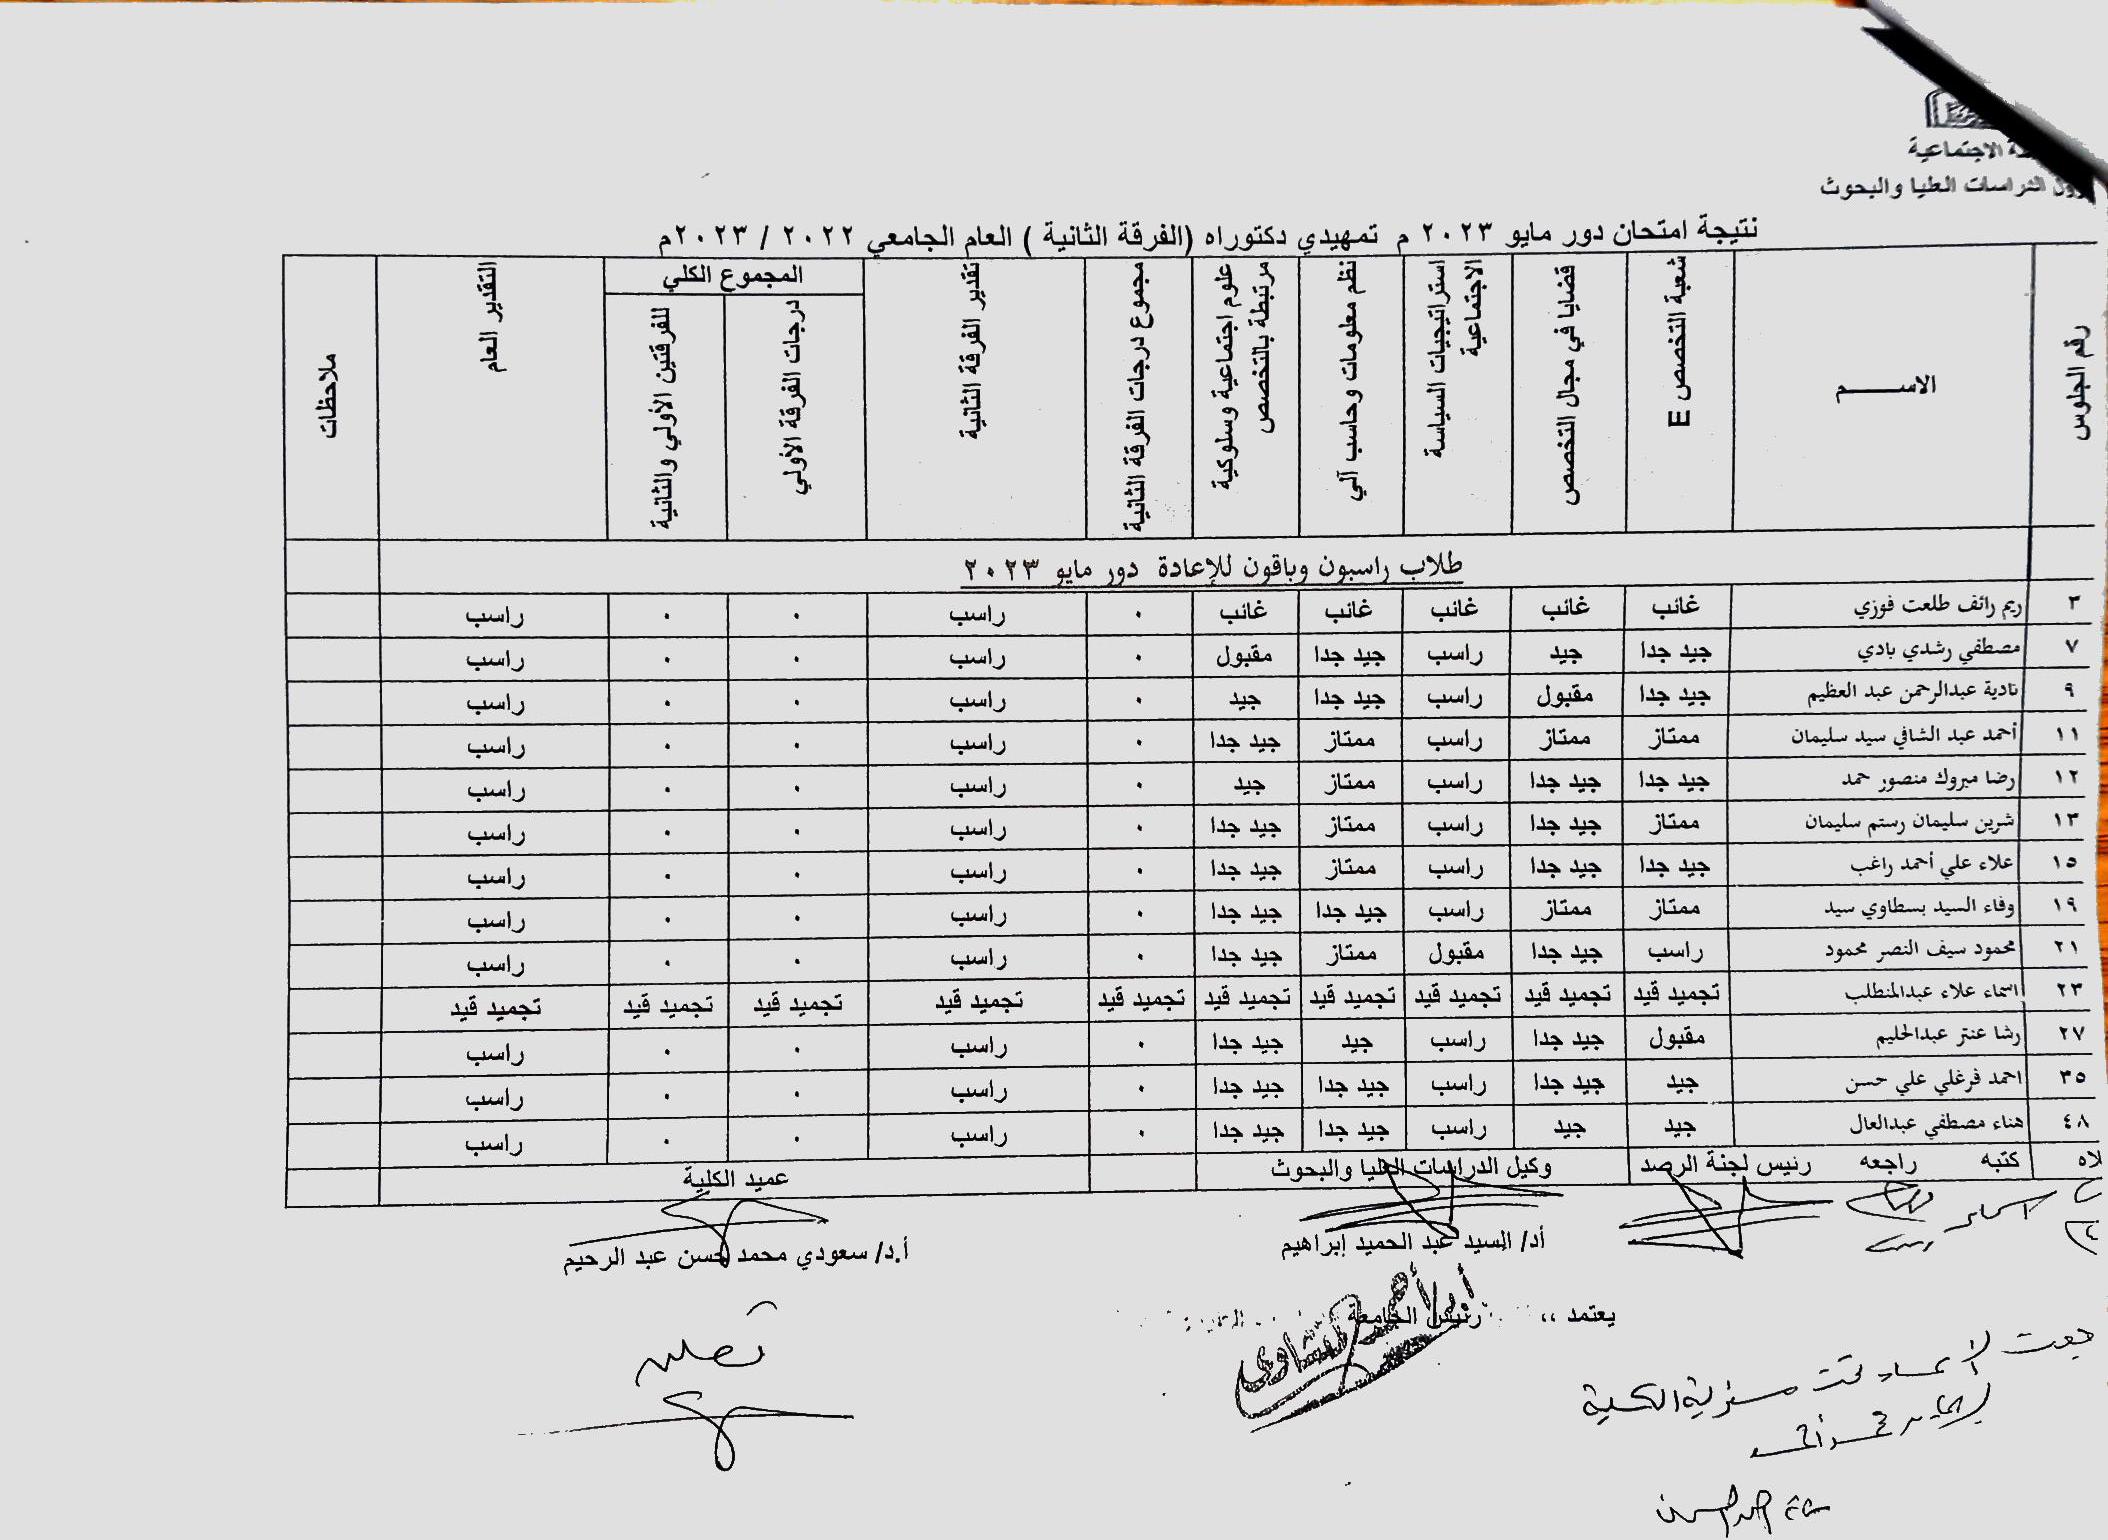 الاجتماعية
الدراسات العليا والبحوث
نتيجة امتحان دور مايو ٢٠٢٣ م تمهيدي دكتوراه (الفرقة الثانية ) العام الجامعي ٢٠٢٢ / ٢٠٢٣م
رقم الجلوس الاســـــم شعبة التخصص E قضايا في مجال التخصص استراتيجيات السياسة الاجتماعية نظم معلومات وحاسب آلي علوم اجتماعية وسلوكية مرتبطة بالتخصص مجموع درجات الفرقة الثانية تقدير الفرقة الثانية المجموع الكلي درجات الفرقة الأولي للفرقتين الأولي والثانية التقدير العام ملاحظات
طلاب راسبون وباقون للإعادة دور مايو ٢٠٢٣
٣ ريم رائف طلعت فوزي غائب غائب غائب غائب غائب ٠ راسب ٠ ٠ راسب
٧ مصطفي رشدي بادي جيد جدا جيد راسب جيد جدا مقبول ٠ راسب ٠ ٠ راسب
٩ نادية عبدالرحمن عبد العظيم جيد جدا مقبول راسب جيد جدا جيد ٠ راسب ٠ ٠ راسب
١١ أحمد عبد الشافي سيد سليمان ممتاز ممتاز راسب ممتاز جيد جدا ٠ راسب ٠ ٠ راسب
١٢ رضا مبروك منصور حمد جيد جدا جيد جدا راسب ممتاز جيد ٠ راسب ٠ ٠ راسب
١٣ شرين سليمان رستم سليمان ممتاز جيد جدا راسب ممتاز جيد جدا ٠ راسب ٠ ٠ راسب
١٥ علاء علي أحمد راغب جيد جدا جيد جدا راسب ممتاز جيد جدا ٠ راسب ٠ ٠ راسب
١٩ وفاء السيد بسطاوي سيد ممتاز ممتاز راسب جيد جدا جيد جدا ٠ راسب ٠ ٠ راسب
٢١ محمود سيف النصر محمود راسب جيد جدا مقبول ممتاز جيد جدا ٠ راسب ٠ ٠ راسب
٢٣ اسماء علاء عبدالمنطلب تجميد قيد تجميد قيد تجميد قيد تجميد قيد تجميد قيد تجميد قيد تجميد قيد تجميد قيد تجميد قيد تجميد قيد
٢٧ رشا عنتر عبدالحليم مقبول جيد جدا راسب جيد جيد جدا ٠ راسب ٠ ٠ راسب
٣٥ احمد فرغلي علي حسن جيد جيد جدا راسب جيد جدا جيد جدا ٠ راسب ٠ ٠ راسب
٤٨ هناء مصطفي عبدالعال جيد جيد راسب جيد جدا جيد جدا ٠ راسب ٠ ٠ راسب
كتبه راجعه رئيس لجنة الرصد وكيل الدراسات العليا والبحوث عميد الكلية
أد/ السيد عبد الحميد إبراهيم أ.د/ سعودي محمد حسن عبد الرحيم
يعتمد ،، رئيس الجامعة
تحت مسئولية الكلية